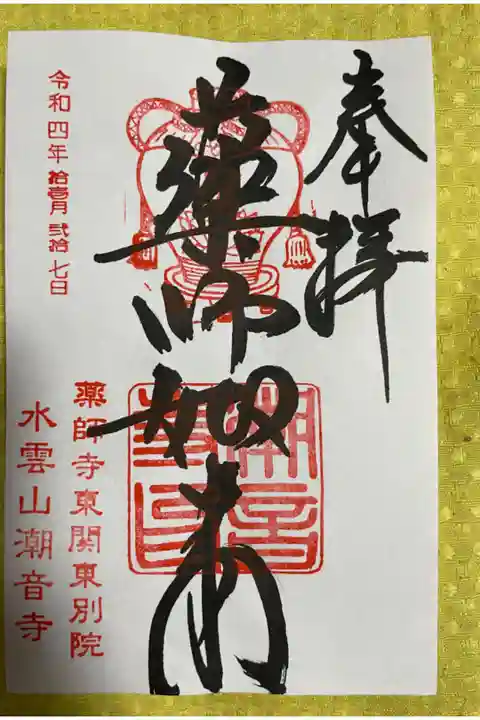 奉拝
薬師如来
令和四年拾壱月弐拾七日
薬師寺東関東別院
水雲山潮音寺